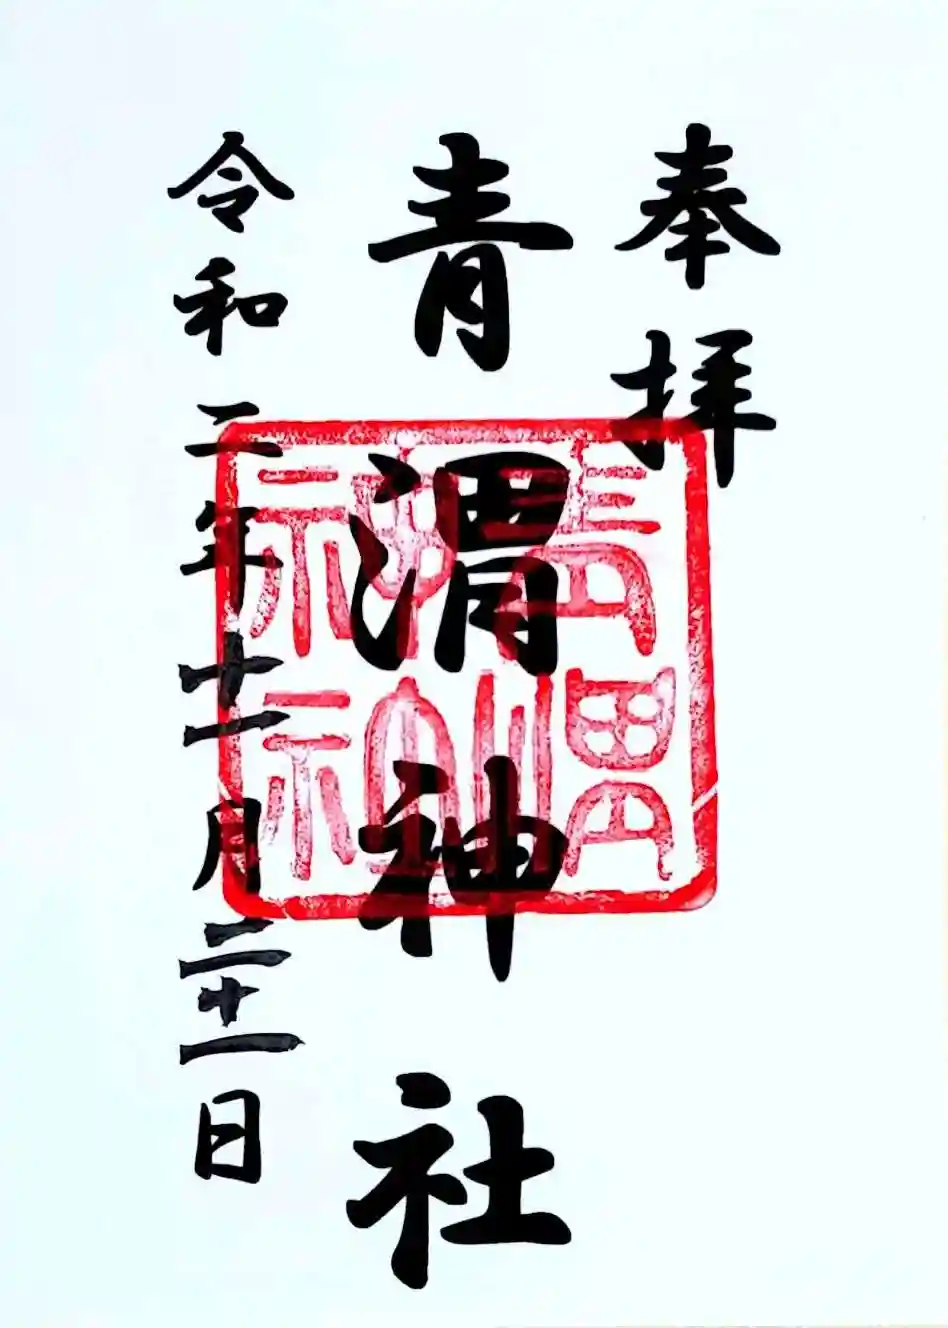 奉拝
青渭神社
令和二年十一月二十一日
青渭神社